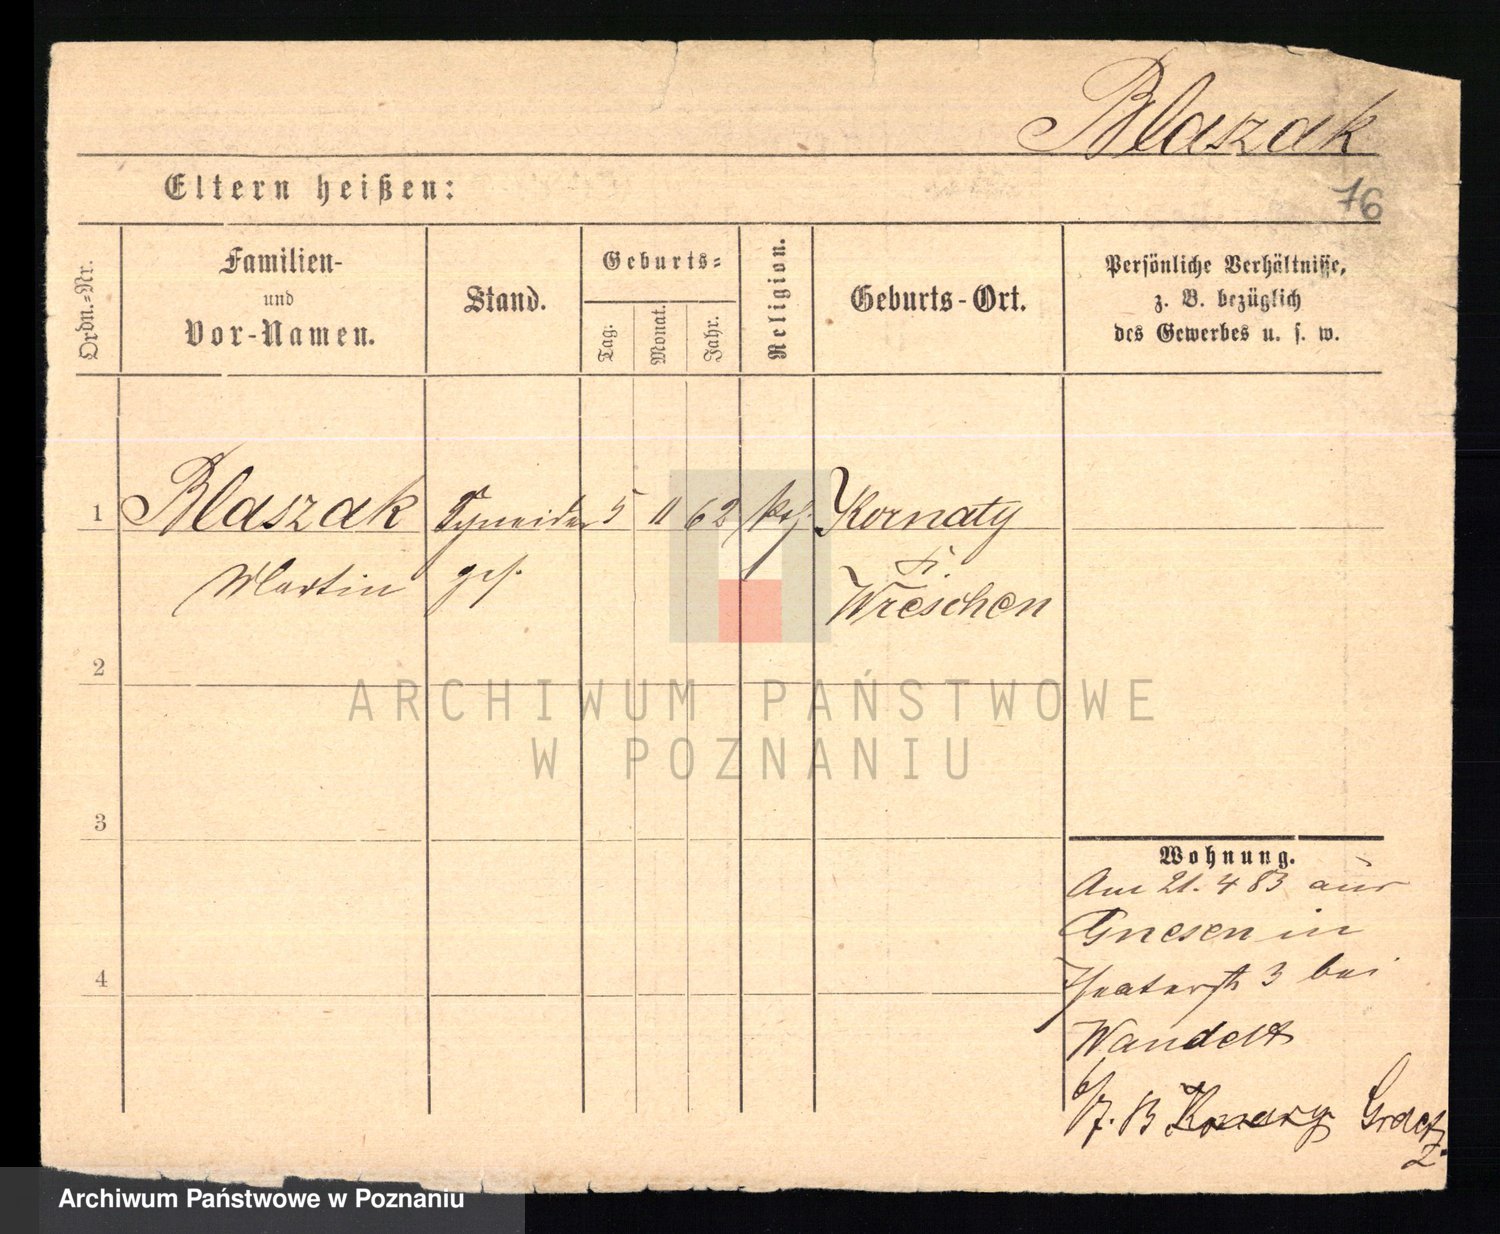 Blaszak
Eltern heißen:
76
Ordn.-Nr.
Familien-
und
Vor-Namen.
Stand.
Geburts-
Tag.
Monat.
Jahr.
Religion.
Geburts-Ort.
Persönliche Verhältnisse,
z. B. bezüglich
des Gewerbes u. s. w.
1 Blaszak Schneider 5 11 62 kath. Kornaty
Martin ges. Kr.
Wreschen
2
ARCHIWUM PAŃSTWOWE
W POZNANIU
3
Wohnung.
Am 21. 4 83 aus
Gnesen in
4
Theaterstr 3 bei
Wandelt
6/7. 83 Graetz
Archiwum Państwowe w Poznaniu